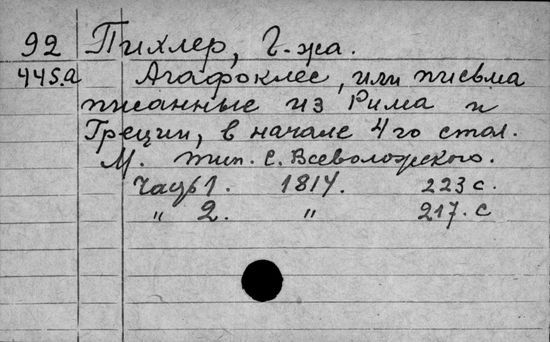 92 Пихлер, Г-жа.
445.а Агафоклес, или письма
писанные из Рима и
Греции, в начале 4го стол.
М. тип. С. Всеволожского.
Часть 1. 1814. 223 с.
" 2. " 217. с